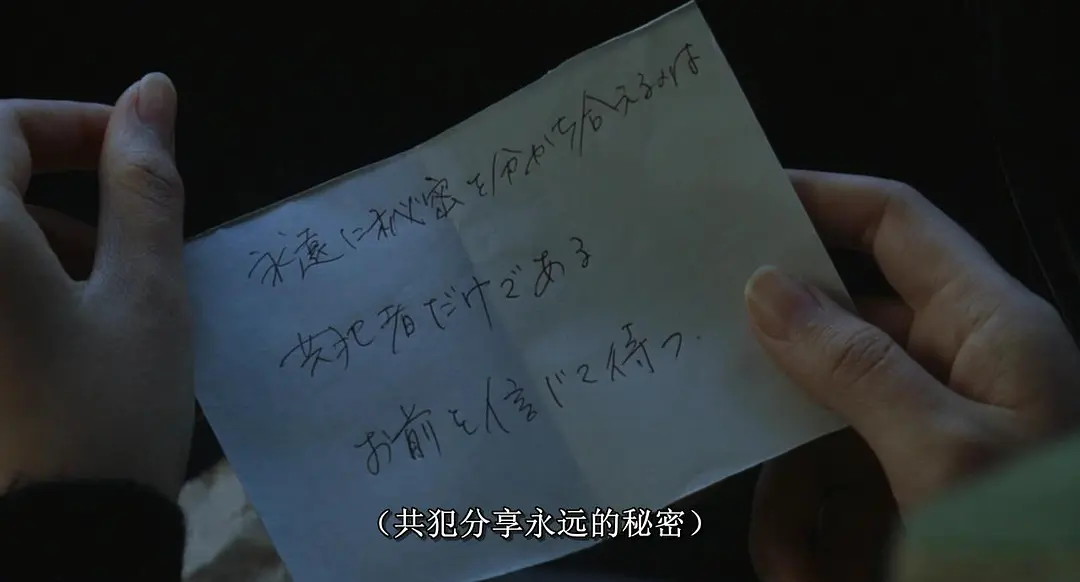 永遠に秘密を分かち合えるのは
共犯者だけである
お前を信じて待つ.
（共犯分享永远的秘密）